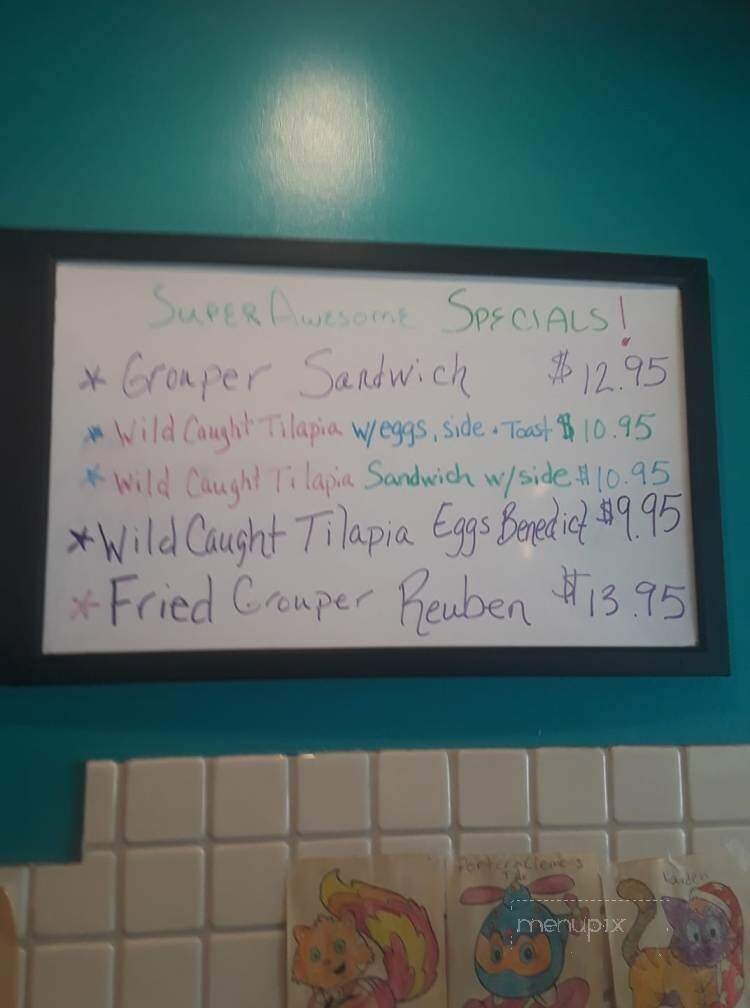 Super Awesome Specials!
* Grouper Sandwich $12.95
* Wild Caught Tilapia w/eggs, side + Toast $10.95
* Wild Caught Tilapia Sandwich w/side $10.95
* Wild Caught Tilapia Eggs Benedict $9.95
* Fried Grouper Reuben $13.95
menupix